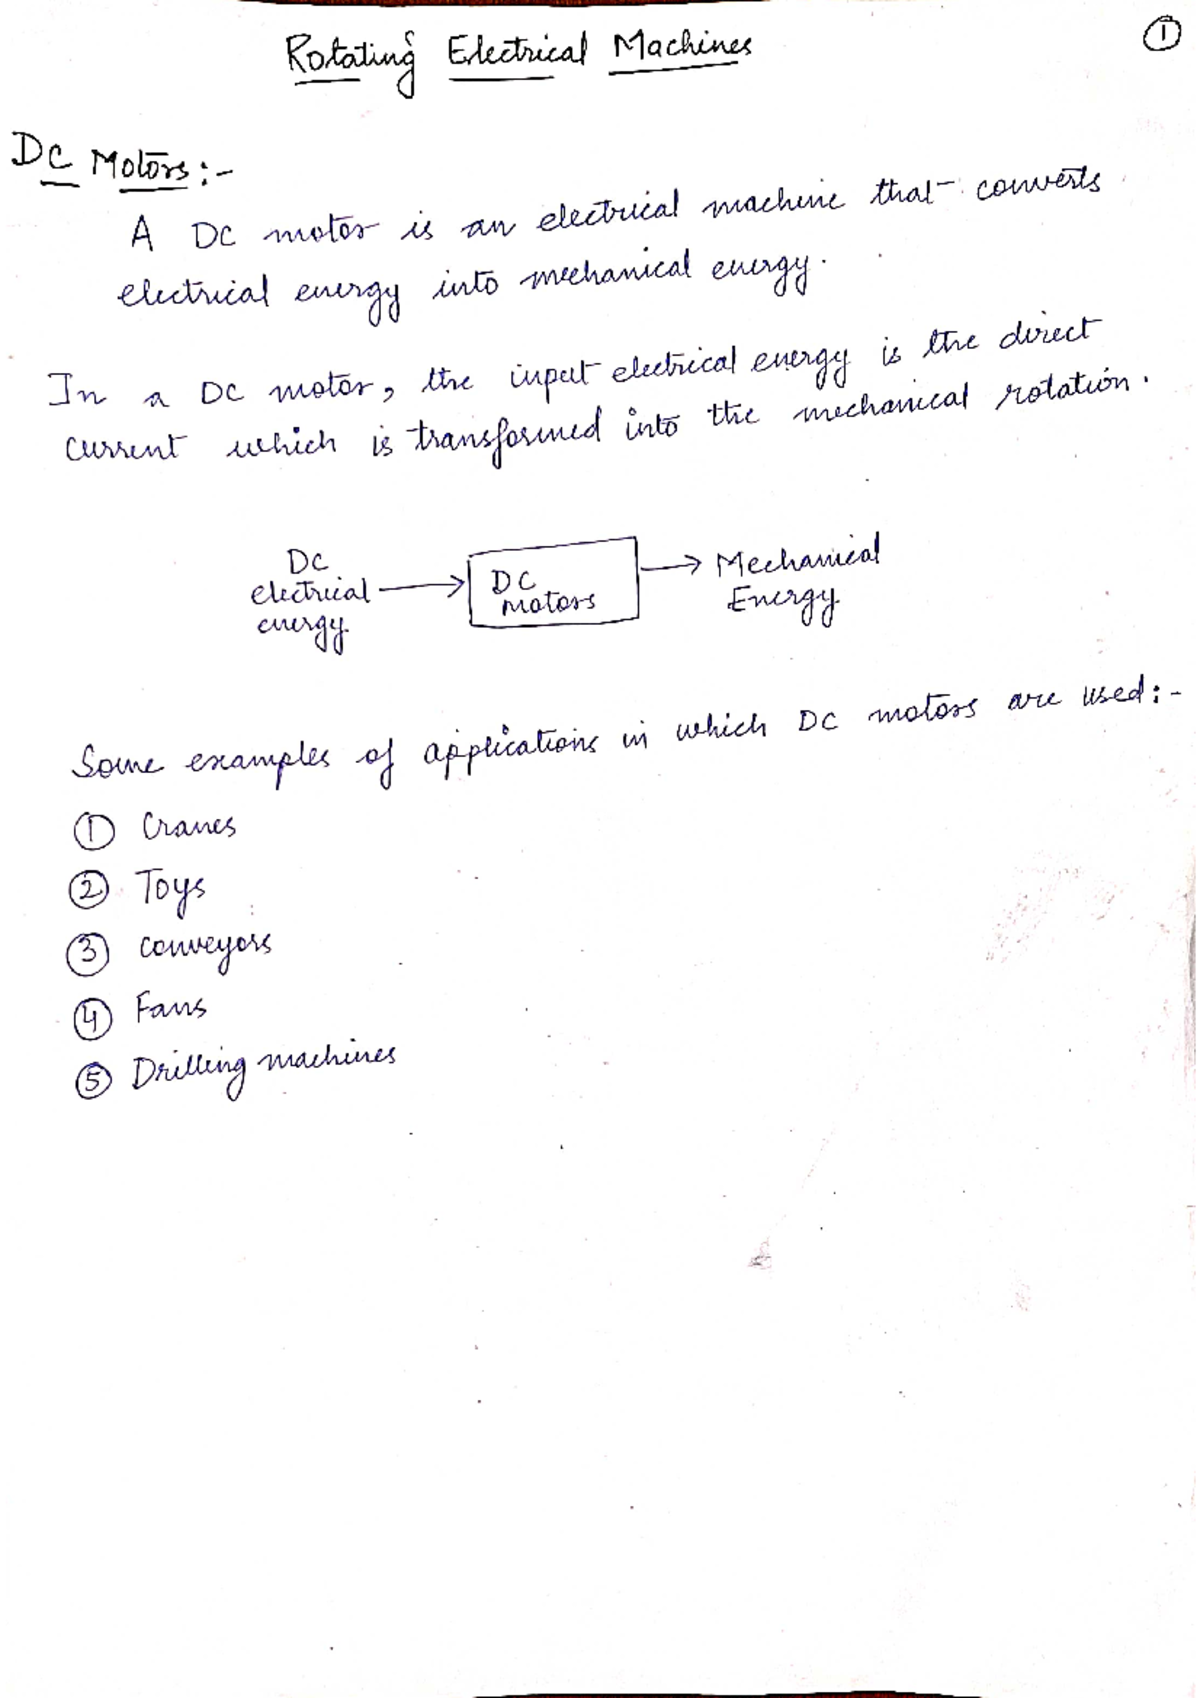 Rotating Electrical Machines
①
DC Motors:-
A DC motor is an electrical machine that converts
electrical energy into mechanical energy.
In a DC motor, the input electrical energy is the direct
current which is transformed into the mechanical rotation.
DC
electrical
energy
DC
motors
Mechanical
Energy
Some examples of applications in which DC motors are used:-
① Cranes
② Toys
③ Conveyors
④ Fans
⑤ Drilling machines